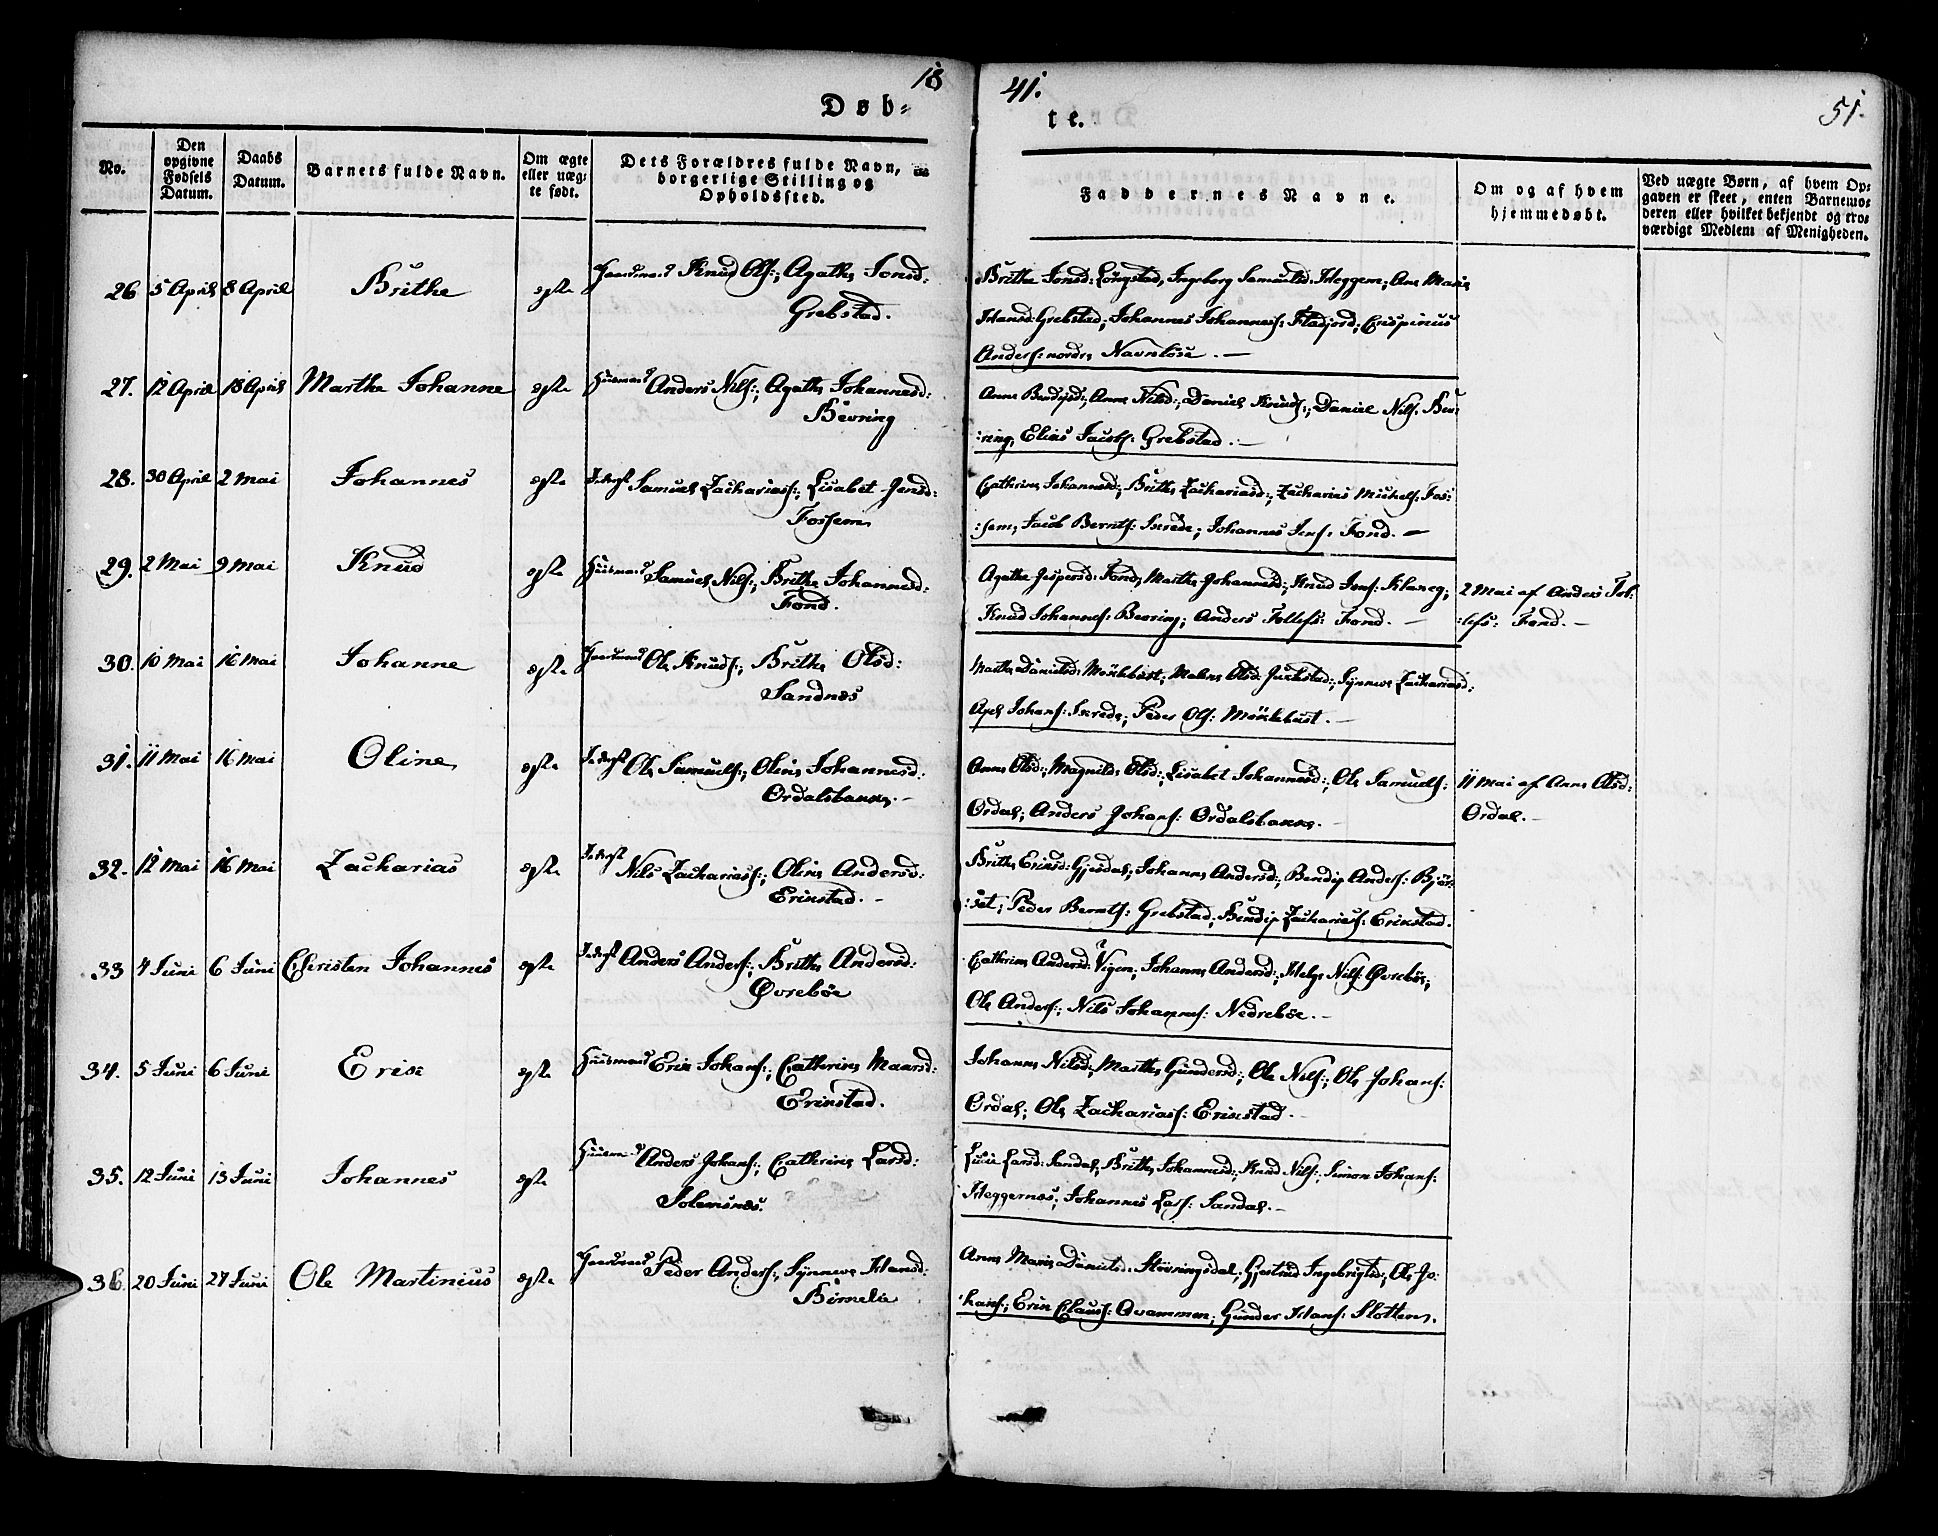 18 41.
Døb-
te.
51.
No.
Den opgivne Fødsels Datum.
Daabs Datum.
Barnets fulde Navn.
Om ægte eller uægte født.
Dets Forældres fulde Navn, borgerlige Stilling og Opholdssted.
Faddernes Navne.
Om og af hvem hjemmedøbt.
Ved uægte Børn, af hvem Opgaven er skeet, enten Barnemoderen eller hvilket bekjendt og troværdigt Medlem af Menigheden.
26 5 April 8 April Brithe egte Gaardmand Knud Ols:, Agathe Jonsd:
Grebstad.
Brithe Jonsd: Longstad, Ingeborg Samuelsd: Heggem; Ane Marie
Hansd: Grebstad; Johannes Johanness: Fladjord; Crispinus
Anders: nordre Navnløse.
27. 12 April 18 April Marthe Johanne egte Huusmand Anders Nils:, Agathe Johannesd:
Bevring
Anne Bendixd:, Anne Nilsd:, Daniel Knuds:, Daniel Nils: Bev-
:ring, Elias Jacobs: Grebstad.
28. 30 April 2 Mai Johannes egte Samuel Zachariass:, Lisabet Jensd:
Fossem
Cathrine Johannesd:, Brithe Zachariasd:, Zacharias Mickels: Fos-
:sem, Jacob Bernts: Skrede; Johannes Jens: Fond.
29. 2 Mai 9 Mai Knud egte Huusmand Samuel Nils:, Brithe Johannesd:
Fond.
Agathe Jespersd: Fond, Marthe Johannesd:, Knud Jens:
Knud Johannes: Bevring; Anders Tollefs: Fond.
2 Mai af Anders Tol-
:lefs: Fond.
30. 10 Mai 16 Mai Johanne egte Gaardmand Ole Knuds:, Brithe Olsd:
Sandnes
Marthe Danielsd: Mönkebust; Malene Olsd: Synneve Zachariasd:
Johans: Skrede; Peder Ols: Mönkebust.
31. 11 Mai 16 Mai Oline egte Ole Samuels:, Oline Johannesd:
Ordalsbakke
Anne Olsd:, Magnilde Olsd:, Lisabet Johannesd:, Ole Samuels:
Ordal; Anders Johans: Ordalsbakke.
11 Mai af Anne Olsd:
Ordal.
32. 12 Mai 16 Mai Zacharias egte Nils Zachariass:, Oline Andersd:
Erikstad.
Brithe Eriksd: Gjesdal, Johanne Andersd:, Bendix Anders: Bjør-
:set; Peder Bernts: Grebstad; Bendix Zachariass: Erikstad.
33 4 Juni 6 Juni Christen Johannes egte Anders Anders:, Brithe Andersd:
Øvrebøe
Cathrine Andersd: Vigen; Johanne Andersd:, Helge Nils: Øvrebøe,
Ole Anders:, Nils Johannes: Nedrebøe.
34. 5 Juni 6 Juni Erik egte Huusmand Erik Johans:, Cathrine Maarsd:
Erikstad.
Johanne Nilsd:, Marthe Gundersd:, Ole Nils:, Ole Johans:
Ordal; Ole Zachariass: Erikstad.
35. 12 Juni 13 Juni Johannes egte Huusmand Anders Johans:, Cathrine Larsd:
Solemsnes.
Lucie Larsd: Sandal, Brithe Johannesd:, Knud Nils:, Simon Johans:
Heggernes; Johannes Lars: Sandal.
36. 20 Juni 27 Juni Ole Martinius egte Gaardmand Peder Anders:, Synneve Hansd:
Birnelie
Anne Marie Danielsd: Støvringsdal; Gjertrud Ingebrigtsd:, Ole Jo-
:hans:, Erik Clauss: Qvammen; Gunder Hans: Slotten.